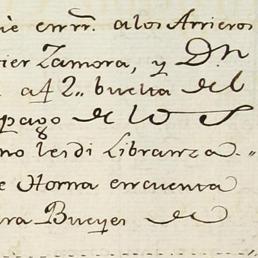 é en rr. alos Arrieros
ier Zamora, y Dn
a 4 2„ buelta del
pago de los
no les di Libranza.„
e Horna en cuenta
ara Bueyes de